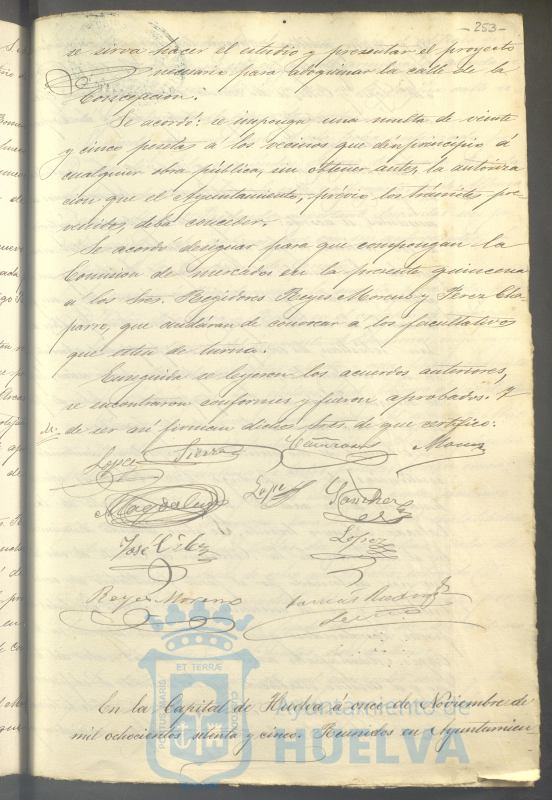 - 253 -
se sirva hacer el estudio y presentar el proyecto
necesario para adoquinar la calle de la
Concepcion.
Se acordó: se imponga una multa de veinte
y cinco pesetas á los vecinos que dén principio á
cualquier obra pública, sin obtener antes, la autoriza
cion que el Ayuntamiento, prévio los trámites pre-
venidos, deba conceder.
Se acordó designar para que compongan la
Comision de mercados en la presente quincena
a los Sres. Regidores Reyes Moreno y Perez Cha
parro, que cuidarán de convocar a los facultativos
que estén de turno.
Enseguida se leyeron los acuerdos anteriores,
se encontraron conformes y fueron aprobados. Y
de ser asi firman dichos Sres. de que certifico:
Lopez Sierra
Magdalena Lopez Sanchez
José
Lopez
Reyes Moreno
Srio
En la Capital de Huelva á once de Noviembre de
mil ochocientos setenta y cinco. Reunidos en Ayuntamien
ET TERRÆ
PORTUS MARIS
CUSTODIA
Ayuntamiento de
HUELVA